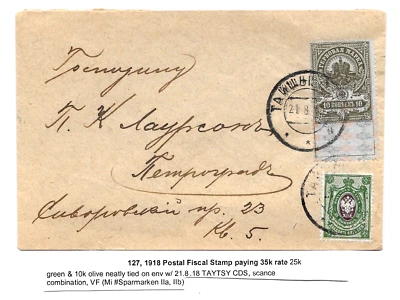 Господину
П. К. Лаурсонъ
Петроградъ
Суворовскій пр. 23
Кв. 5.
ТАЙЦЫ
21.8
МАРКА
10 КОПѢЕКЪ 10
127, 1918 Postal Fiscal Stamp paying 35k rate 25k
green & 10k olive neatly tied on env w/ 21.8.18 TAYTSY CDS, scance
combination, VF (Mi #Sparmarken IIa, IIb)